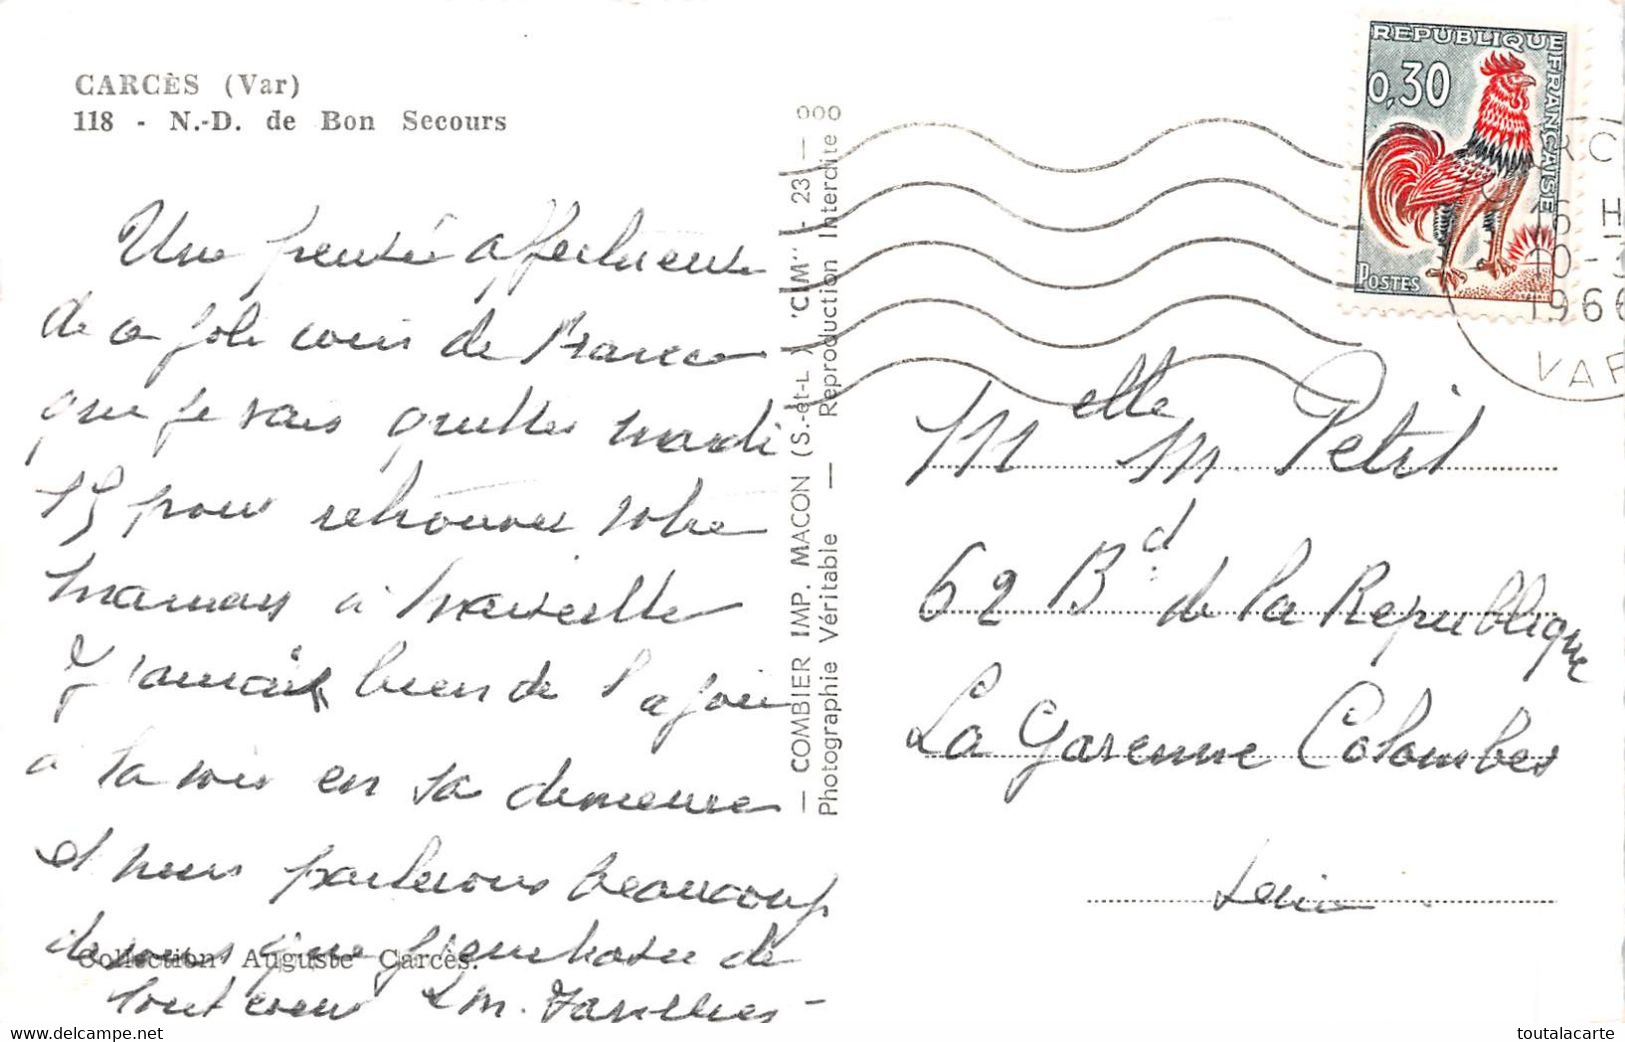 CARCÈS (Var)
118 - N.-D. de Bon Secours
Une pensée affectueuse
de ce joli coin de
que je vais quitter mardi
15 pour retrouver votre
maman à Marseille
J'aurais bien de la joie
à la voir en sa demeure
et nous parlerons beaucoup
de vous que j'embrasse de
tout cœur
Collection Auguste Carcès.
— COMBIER IMP. MACON (S.-et-L.) "CIM" - 23 — 000
Photographie Véritable — Reproduction Interdite
REPUBLIQUE FRANÇAISE
0,30
POSTES
16 H
1966
VAR
Melle M. Petit
62 Bd de la République
La Garenne Colombes
Seine
toutalacarte